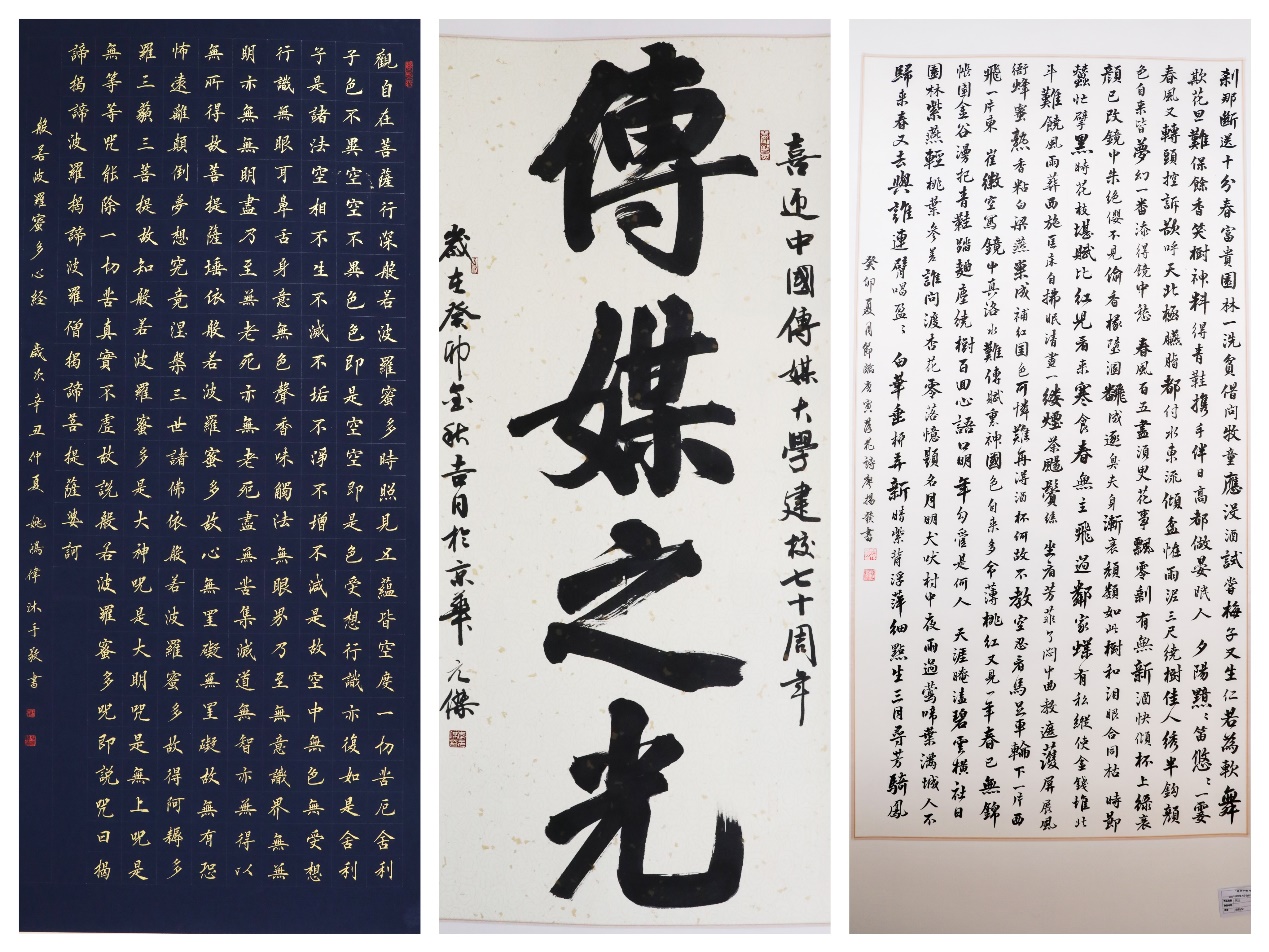 觀自在菩薩行深般若波羅蜜多時照見五蘊皆空度一切苦厄舍利
子色不異空空不異色色即是空空即是色受想行識亦復如是舍利
子是諸法空相不生不滅不垢不淨不增不減是故空中無色無受想
行識無眼耳鼻舌身意無色聲香味觸法無眼界乃至無意識界無無
明亦無無明盡乃至無老死亦無老死盡無苦集滅道無智亦無得以
無所得故菩提薩埵依般若波羅蜜多故心無罣礙無罣礙故無有恐
怖遠離顛倒夢想究竟涅槃三世諸佛依般若波羅蜜多故得阿耨多
羅三藐三菩提故知般若波羅蜜多是大神咒是大明咒是無上咒是
無等等咒能除一切苦真實不虛故說般若波羅蜜多咒即說咒曰揭
諦揭諦波羅揭諦波羅僧揭諦菩提薩婆訶
般若波羅蜜多心経 歲次辛丑仲夏 姚滿偉沐手敬書
喜迎中國傳媒大學建校七十周年
傳媒之光
歲在癸卯金秋吉月於京華 元傑
剎那斷送十分春富貴園林一洗貧借問牧童應沒酒試嘗梅子又生仁若為軟舞
欺花旦難保餘香笑樹神料得青鞋攜手伴日高都做晏眠人 夕陽黯:笛悠:一霎
春風又轉頭控訴欲呼天北極臙脂都付水東流傾盆怪雨泥三尺繞樹佳人綉半鈎顏
色自来皆夢幻一番添得鏡中愁 春風百五盡須臾花事飄零剩有無新酒快傾杯上綠衰
顏已改鏡中朱絕纓不見偷香掾墮溷翻成逐臭夫身漸衰頹類如此樹和淚眼合同枯 時節
蠶忙擘黑時花枝堪賦比紅兒看来寒食春無主飛過鄰家蝶有私縱使金錢堆北
斗難饒風雨葬西施匡床自拂眠清晝一縷煙茶颺鬢絲 坐看芳菲了悶中曲教遮護屏展風
衙蜂蜜熟香粘白梁燕巢成補紅国色可憐難再得酒杯何故不教空忍看馬足車輪下一片西
飛一片東 崔徽空寫鏡中真洛水難傳賦裏神國色自来多命薄桃紅又見一年春已無錦
帳圍金谷漫把青鞋踏麯塵繞樹百回心語口明年勾管是何人 天涯晻溘碧雲橫社日
園林紫燕輕桃葉參差誰問渡杏花零落憶題名月明犬吠村中夜雨過鶯啼葉滿城人不
歸来春又去與誰連臂唱盈: 白華垂柳弄新晴紫背浮萍細點生三月尋芳騎鳳
癸卯夏月節臨唐寅落花詩廖揚發書